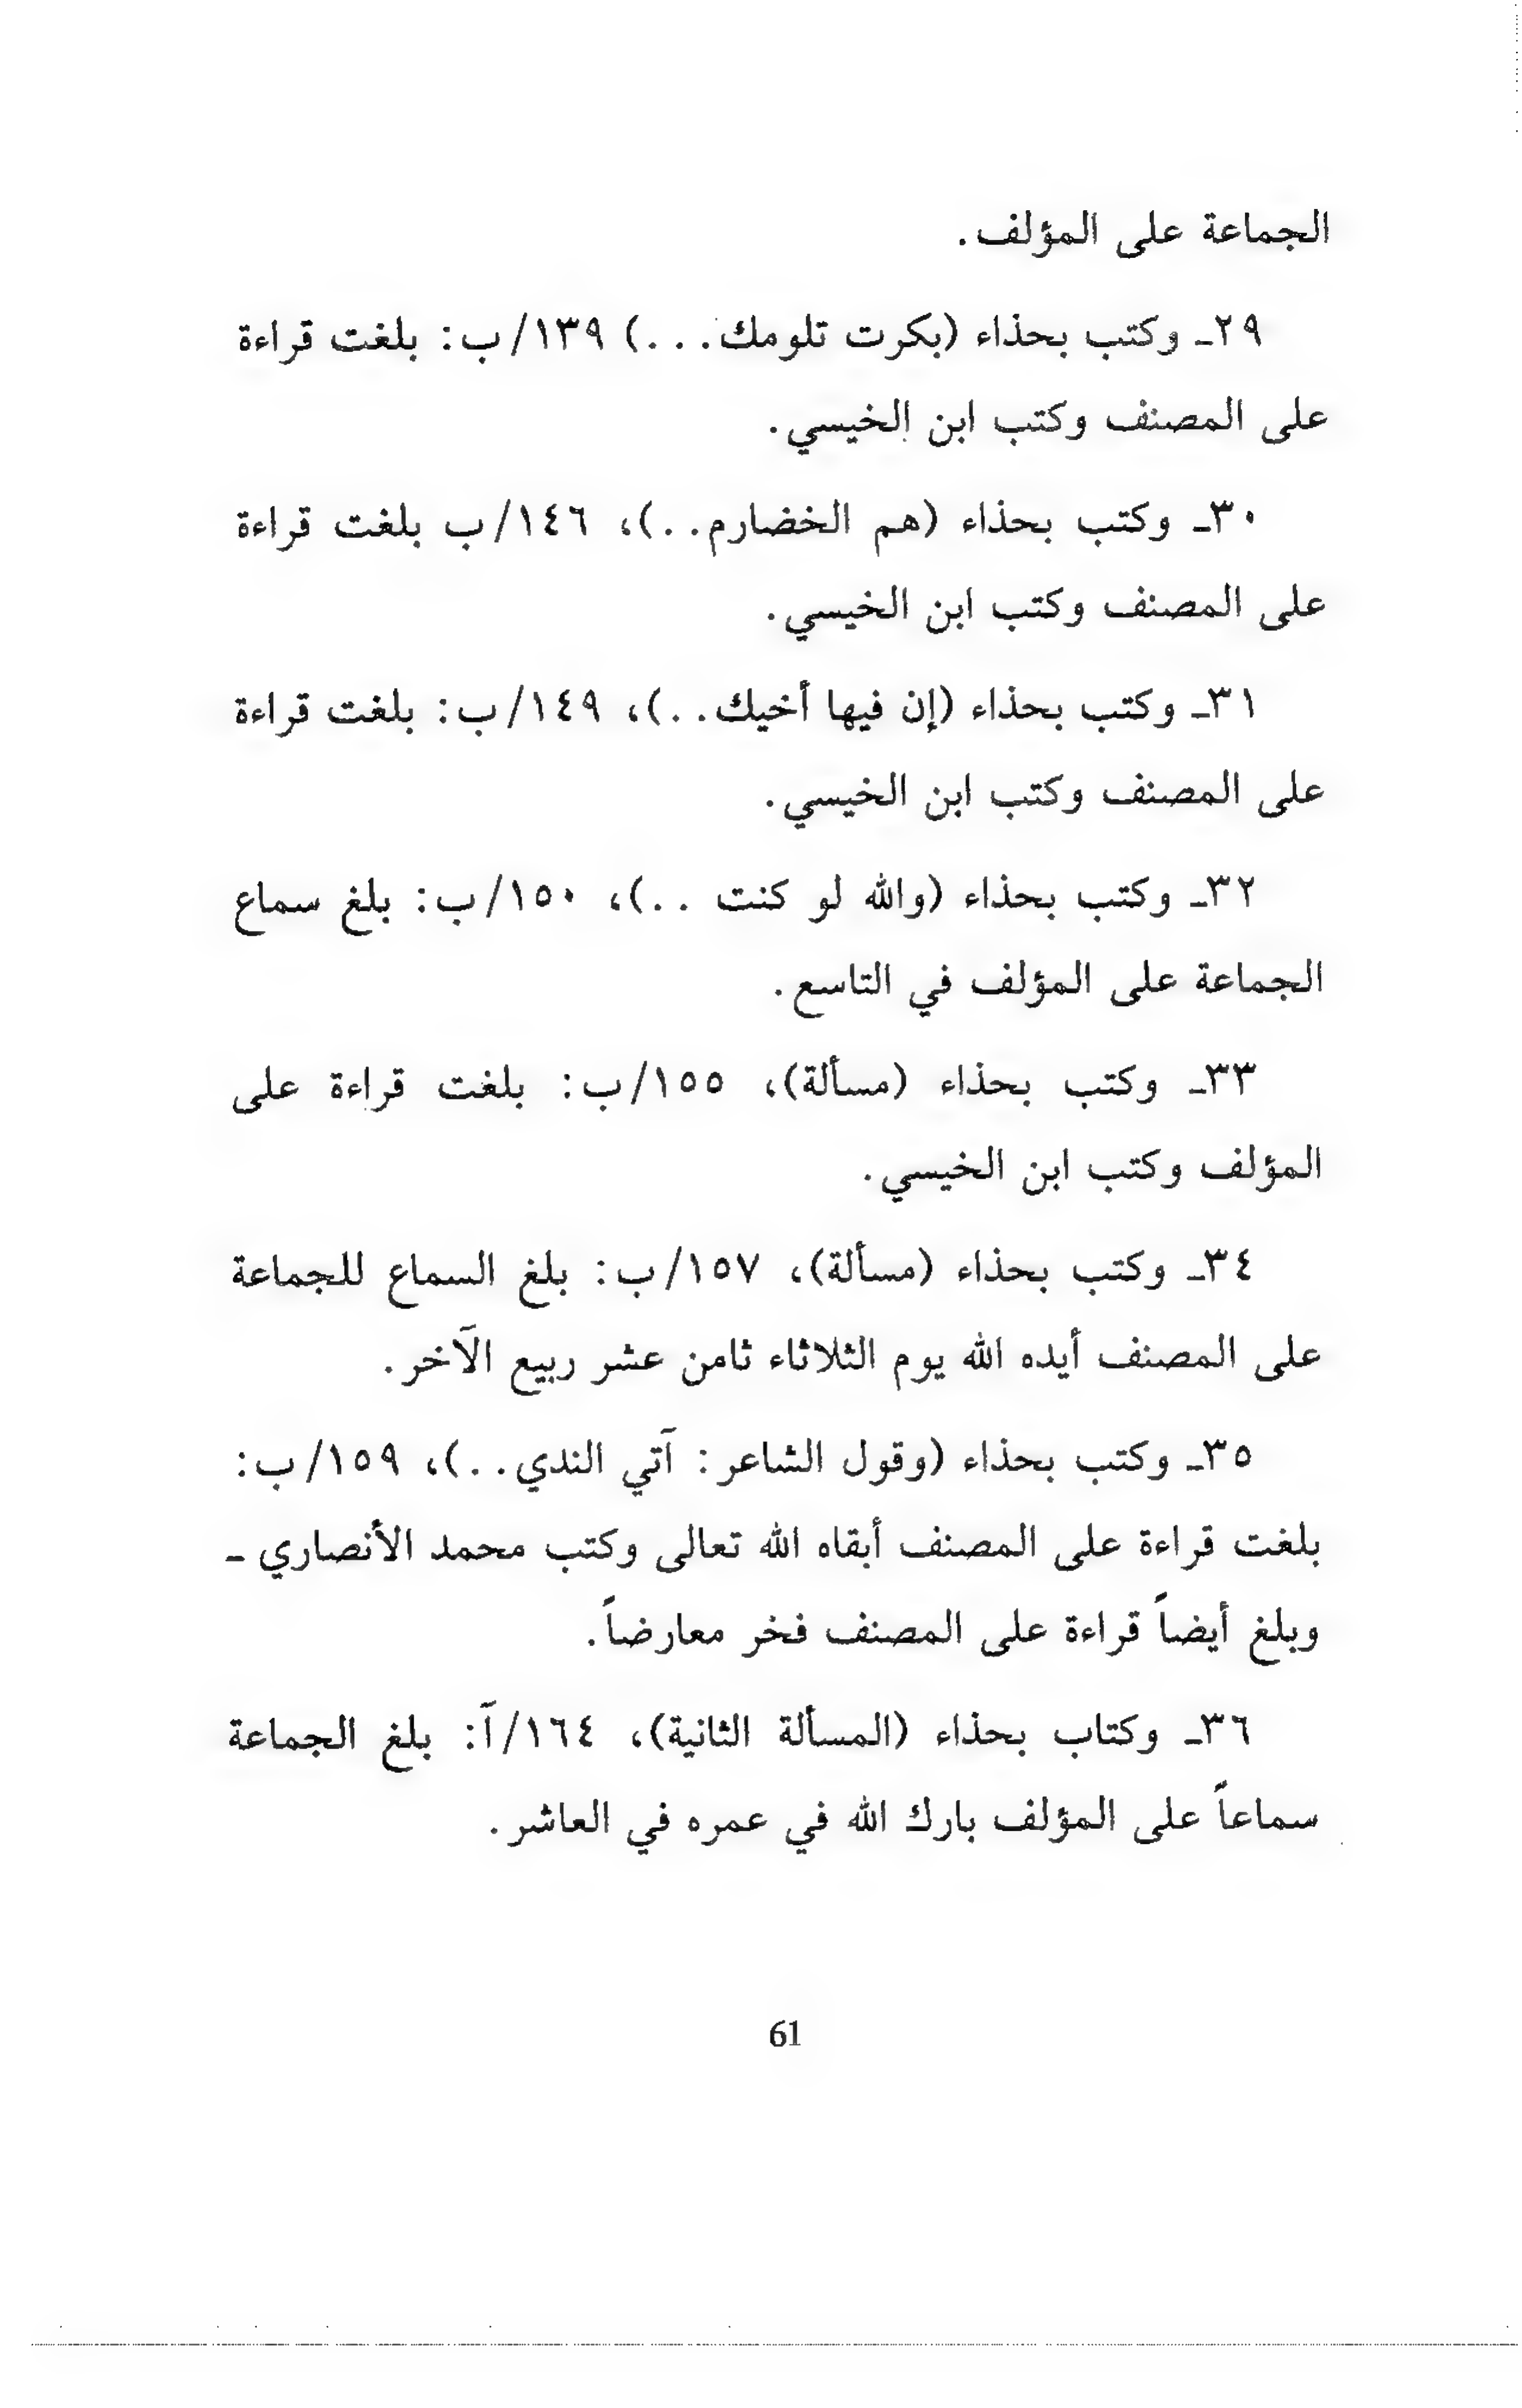 الجماعة على المؤلف.
٢٩ـ وكتب بحذاء (بكرت تلومك. . .) ١٣٩/ب: بلغت قراءة
على المصنف وكتب ابن الخيسي.
٣٠ـ وكتب بحذاء (هم الخضارم. .)، ١٤٦/ب بلغت قراءة
على المصنف وكتب ابن الخيسي.
٣١ـ وكتب بحذاء (إن فيها أخيك. .)، ١٤٩/ب: بلغت قراءة
على المصنف وكتب ابن الخيسي.
٣٢ـ وكتب بحذاء (والله لو كنت . .)، ١٥٠/ب: بلغ سماع
الجماعة على المؤلف في التاسع.
٣٣ـ وكتب بحذاء (مسألة)، ١٥٥/ب: بلغت قراءة على
المؤلف وكتب ابن الخيسي.
٣٤ـ وكتب بحذاء (مسألة)، ١٥٧/ب: بلغ السماع للجماعة
على المصنف أيده الله يوم الثلاثاء ثامن عشر ربيع الآخر.
٣٥ـ وكتب بحذاء (وقول الشاعر: آتي الندي. .)، ١٥٩/ب:
بلغت قراءة على المصنف أبقاه الله تعالى وكتب محمد الأنصاري ـ
وبلغ أيضاً قراءة على المصنف فخر معارضاً.
٣٦ـ وكتاب بحذاء (المسألة الثانية)، ١٦٤/آ: بلغ الجماعة
سماعاً على المؤلف بارك الله في عمره في العاشر.
61